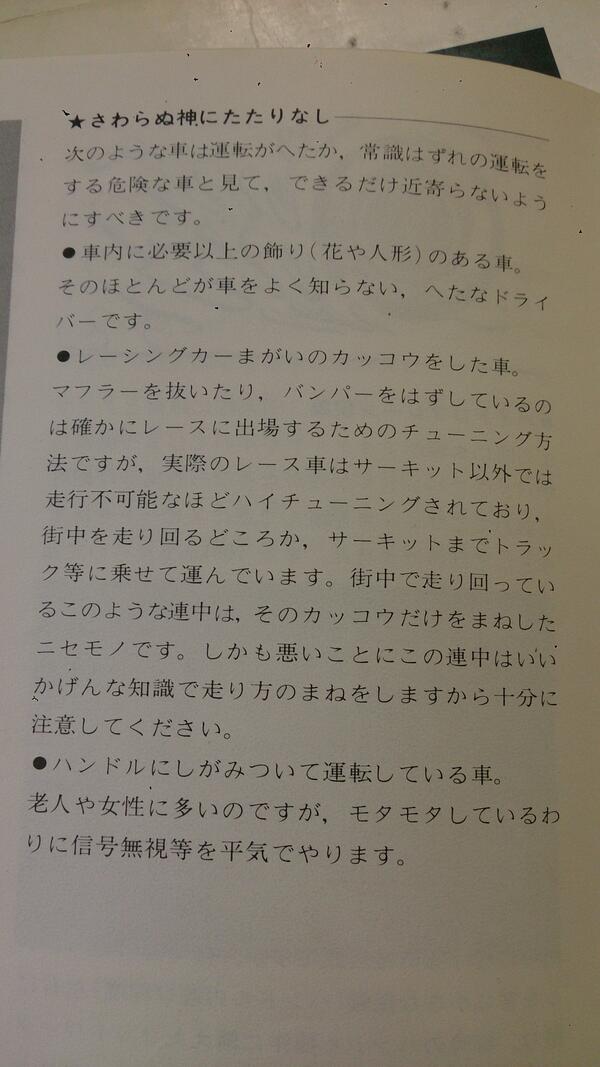 ★さわらぬ神にたたりなし
次のような車は運転がへたか，常識はずれの運転を
する危険な車と見て，できるだけ近寄らないよう
にすべきです。
●車内に必要以上の飾り(花や人形)のある車。
そのほとんどが車をよく知らない，へたなドライ
バーです。
●レーシングカーまがいのカッコウをした車。
マフラーを抜いたり，バンパーをはずしているの
は確かにレースに出場するためのチューニング方
法ですが，実際のレース車はサーキット以外では
走行不可能なほどハイチューニングされており，
街中を走り回るどころか，サーキットまでトラッ
ク等に乗せて運んでいます。街中で走り回ってい
るこのような連中は，そのカッコウだけをまねした
ニセモノです。しかも悪いことにこの連中はいい
かげんな知識で走り方のまねをしますから十分に
注意してください。
●ハンドルにしがみついて運転している車。
老人や女性に多いのですが，モタモタしているわ
りに信号無視等を平気でやります。